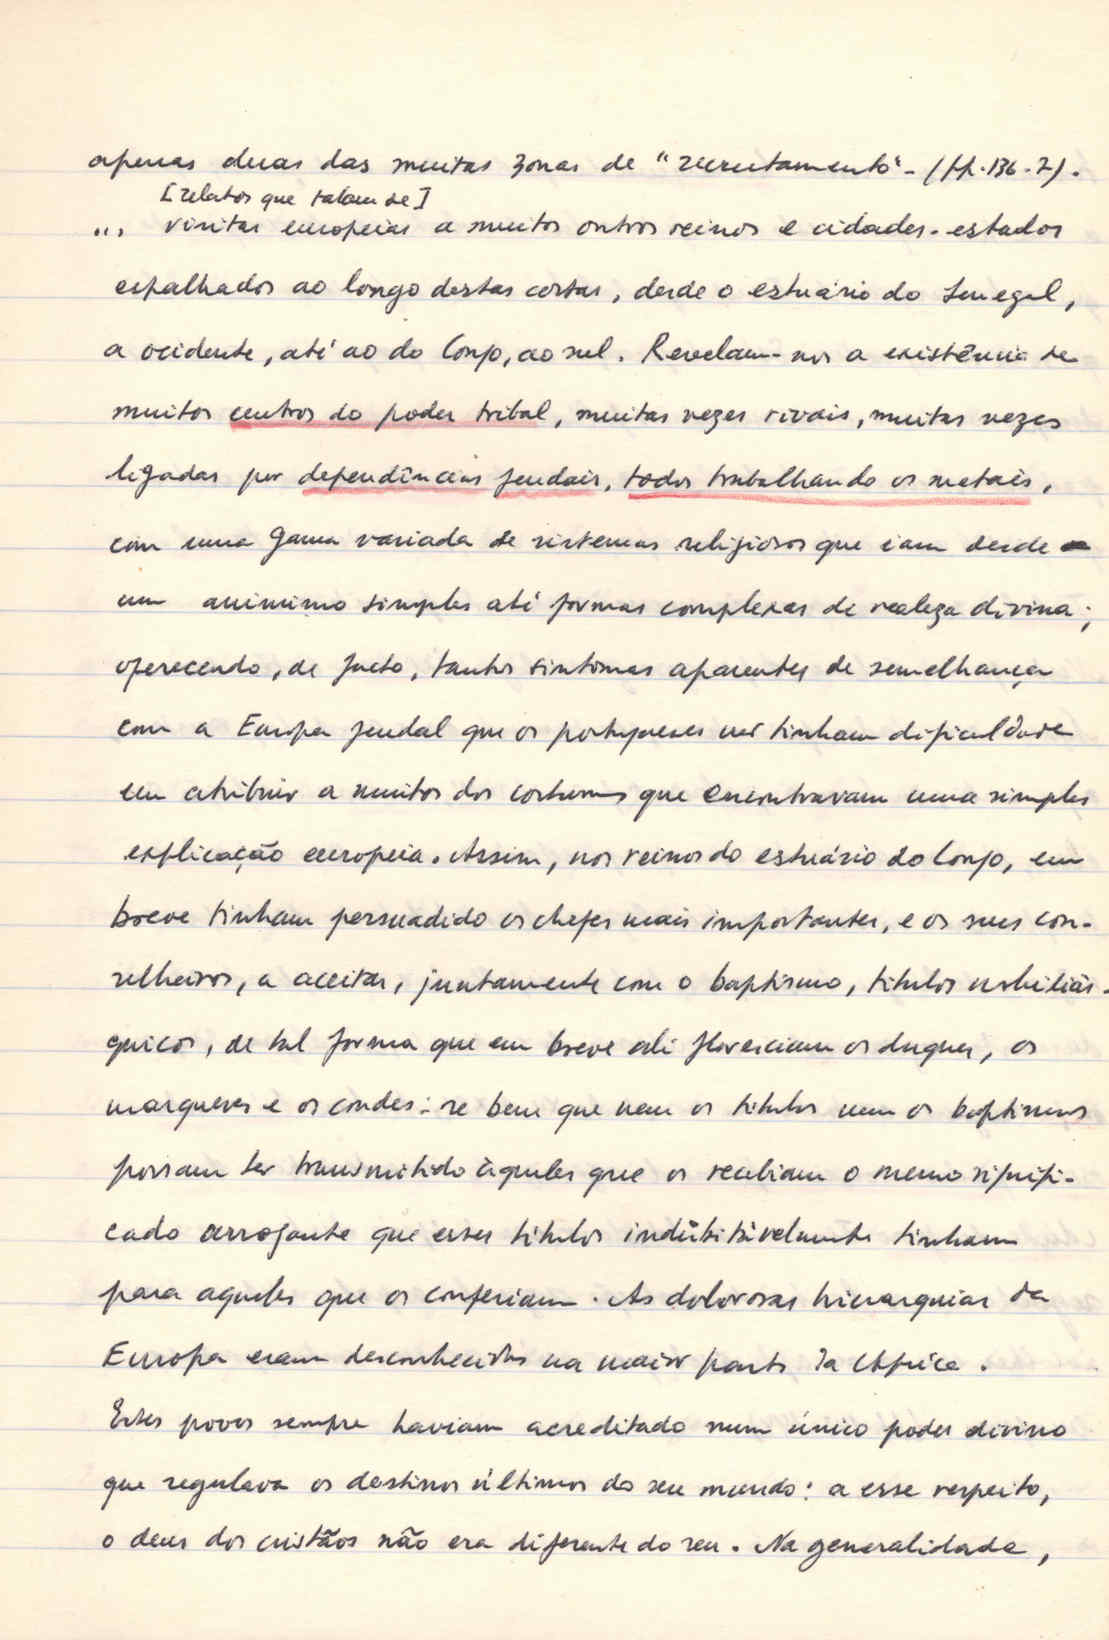 apenas duas das muitas zonas de "recrutamento" - (pp. 136-7).
[relatos que falam de]
... visitas europeias a muitos outros reinos e cidades-estados
espalhados ao longo destas costas, desde o estuário do Senegal,
a ocidente, até ao do Congo, ao sul. Revelam-nos a existência de
muitos centros do poder tribal, muitas vezes rivais, muitas vezes
ligadas por dependências feudais, todos trabalhando os metais,
com uma gama variada de sistemas religiosos que iam desde
um animismo simples até formas complexas de realeza divina;
oferecendo, de facto, tantos sintomas aparentes de semelhança
com a Europa feudal que os portugueses não tinham dificuldade
em atribuir a muitos dos costumes que encontravam uma simples
explicação europeia. Assim, nos reinos do estuário do Congo, em
breve tinham persuadido os chefes mais importantes, e os seus con-
selheiros, a aceitar, juntamente com o baptismo, títulos nobiliár-
quicos, de tal forma que em breve ali floresciam os duques, os
marqueses e os condes: se bem que nem os títulos nem os baptismos
possam ter transmitido àqueles que os recebiam o mesmo signifi-
cado arrogante que esses títulos indùbitàvelmente tinham
para aqueles que os conferiam. As dolorosas hierarquias da
Europa eram desconhecidas na maior parte da África.
Estes povos sempre haviam acreditado num único poder divino
que regulava os destinos últimos do seu mundo: a esse respeito,
o deus dos cristãos não era diferente do seu. Na generalidade,